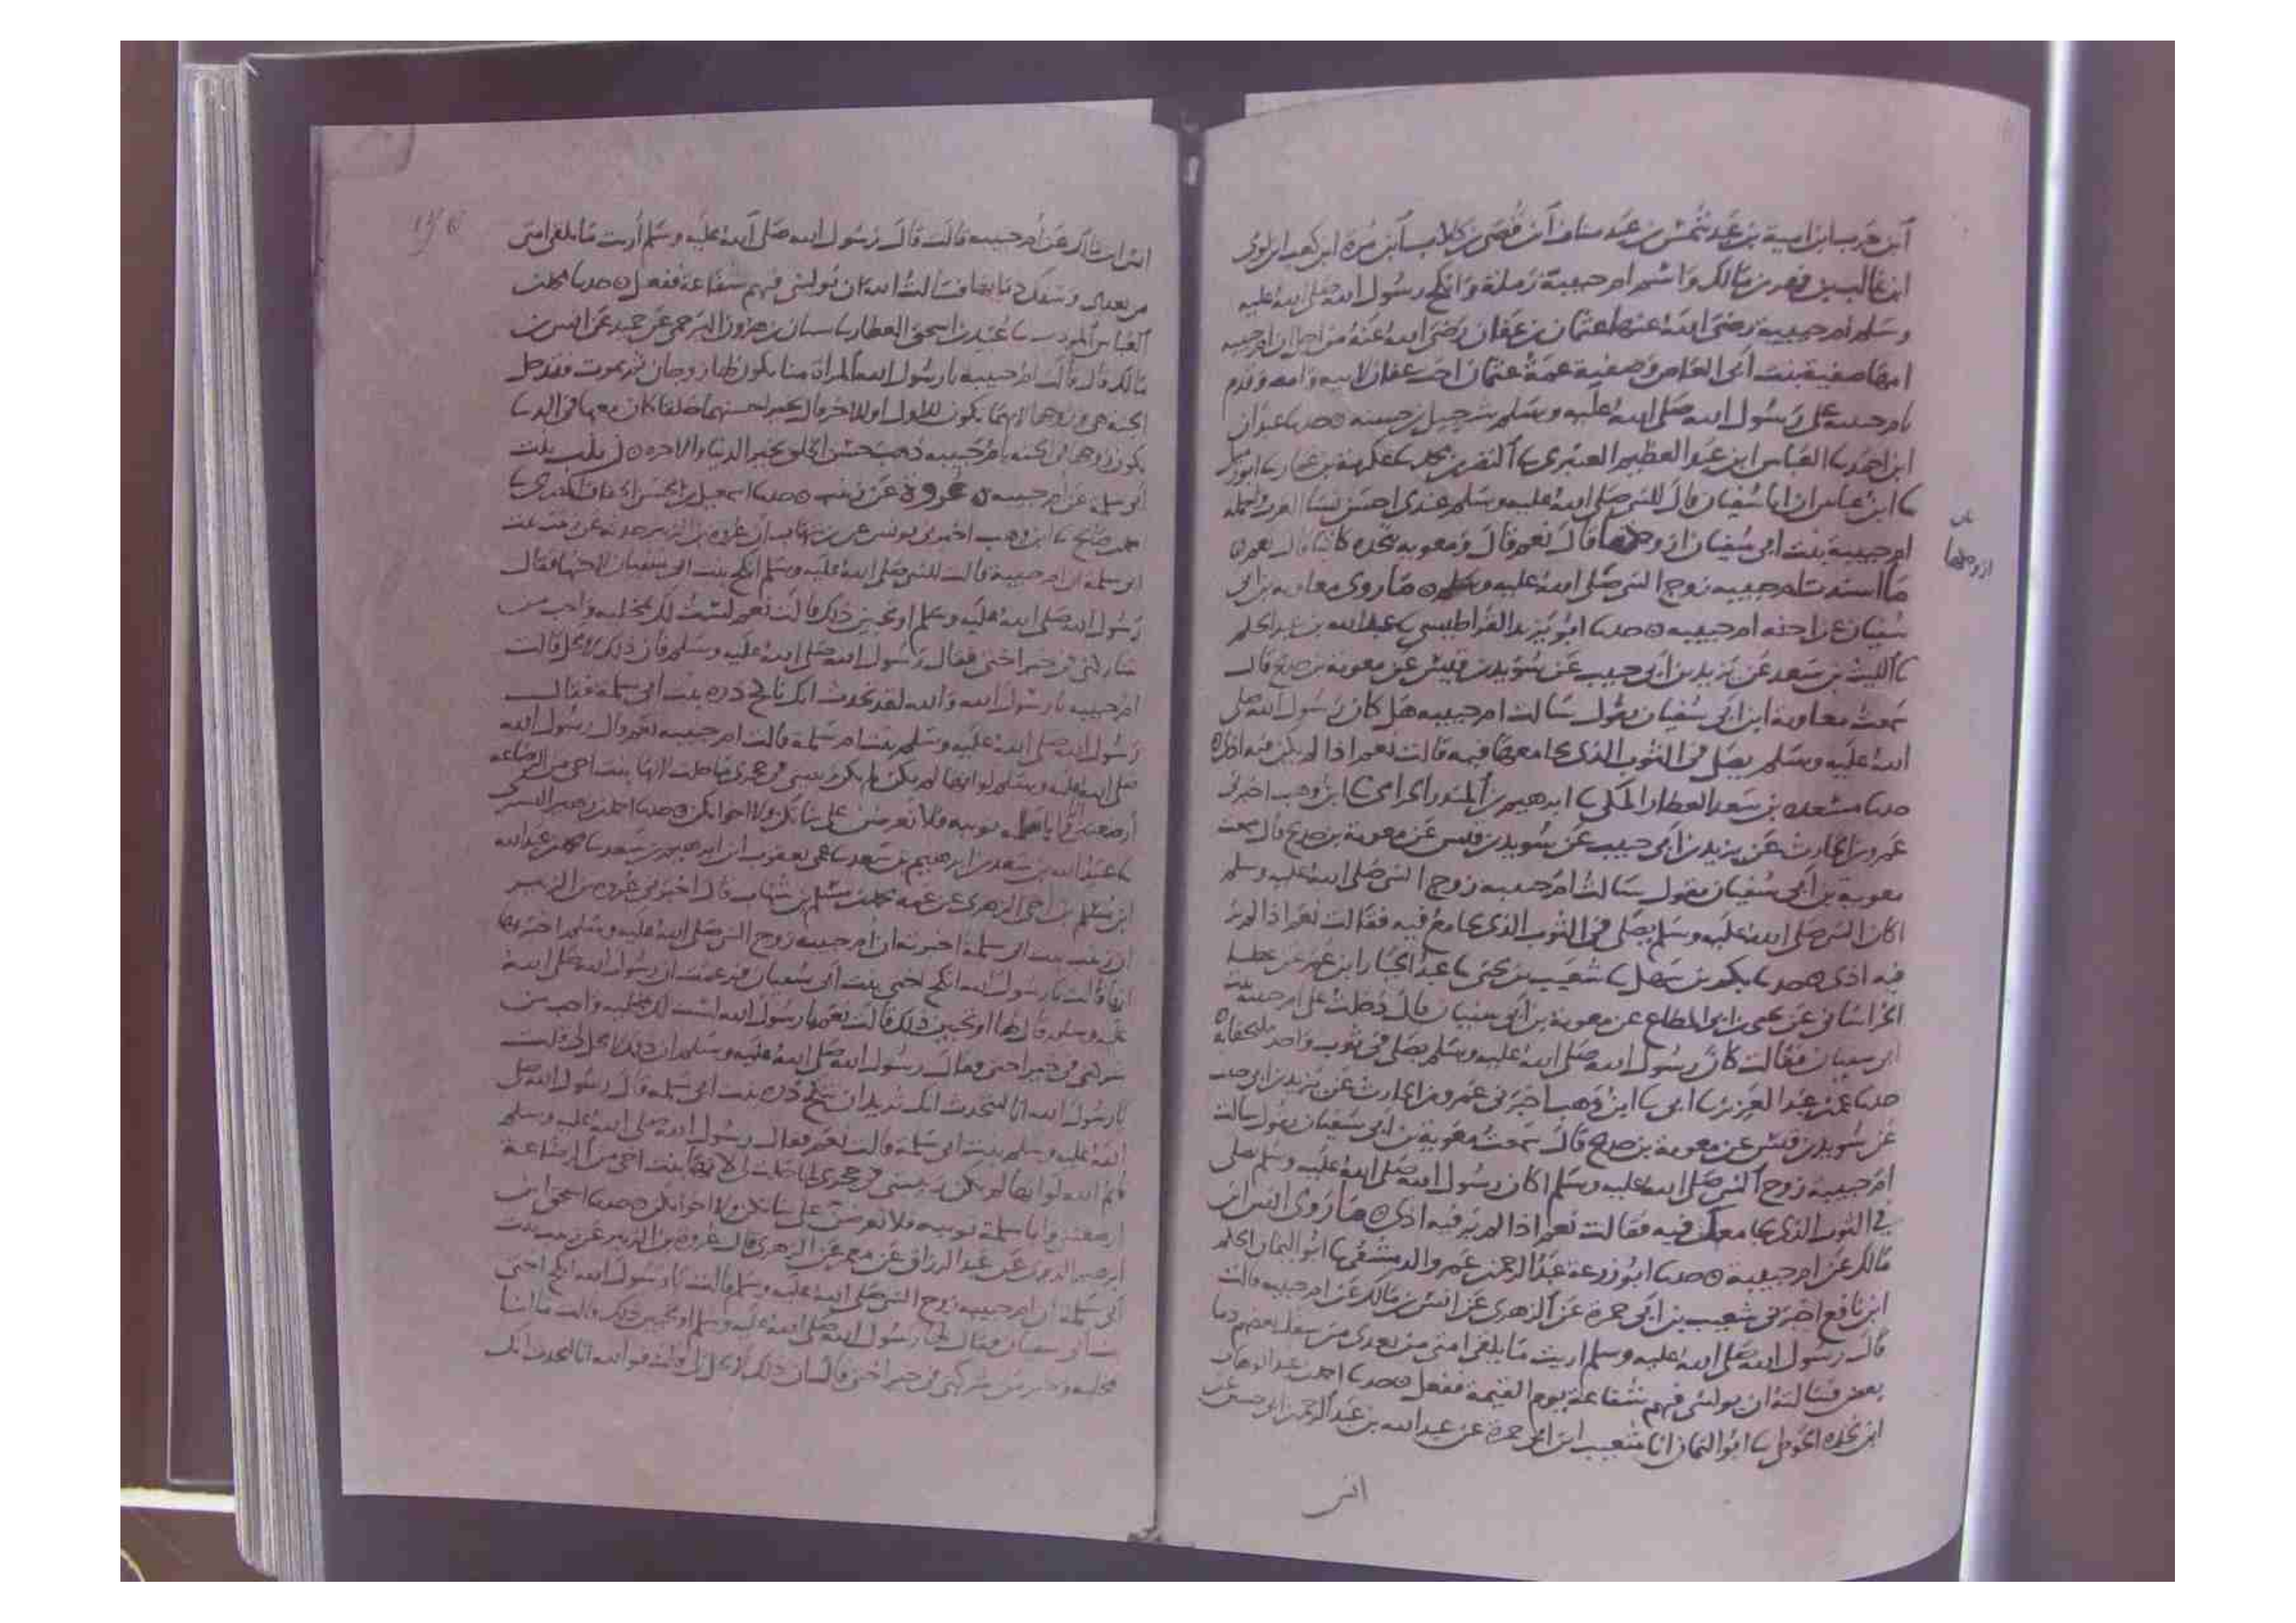 ابن حرب ابن امية بن عبد شمس بن عبد مناف ابن قصي بن كلاب ابن مرة ابن كعب ابن لوى
ابن غالب بن فهر بن مالك واسم ام حبيبة رملة وانكح رسول الله صلى الله عليه
وسلم ام حبيبة رضى الله عنها عثمان بن عفان رضى الله عنه من اجل ان ام حبيبه
امها صفية بنت ابى العاص وصفية عمة عثمان اخت عفان لابيه وامه وقدم
بام حبيبه على رسول الله صلى الله عليه وسلم شرحبيل بن حسنه حدثنا عبدان
ابن احمد ثنا العباس ابن عبد العظيم العنبرى ثنا النضر بن محمد ثنا عكرمة بن عمار ثنا ابو زميل
ثنا ابن عباس ان ابا سفيان قال للنبى صلى الله عليه وسلم عندى احسن نسا العرب واجمله
ام حبيبة بنت ابى سفيان ازوجكها قال نعم قال ومعويه تجعله كاتبا قال نعم
ازوجكها
ما اسندت ام حبيبه زوج النبى صلى الله عليه وسلم ما روى معاويه بن ابى
سفيان عن اخته ام حبيبه حدثنا ابو يزيد القراطيسى ثنا عبد الله بن عبد الحكم
ثنا الليث بن سعد عن يزيد بن ابى حبيب عن سويد بن قيس عن معوية بن حديج قال
سمعت معاوية ابن ابى سفيان يقول سالت ام حبيبه هل كان رسول الله صلى
الله عليه وسلم يصلى فى الثوب الذى يجامعها فيه قالت نعم اذا لم يكن فيه اذى
حدثنا مسعده بن سعد العطار المكى ثنا ابرهيم بن المنذر الحزامى ثنا ابن وهب اخبرنى
عمرو بن الحارث عن يزيد بن ابى حبيب عن سويد بن قيس عن معوية بن حديج قال سمعت
معوية بن ابى سفيان يقول سالت ام حبيبه زوج النبى صلى الله عليه وسلم
اكان النبى صلى الله عليه وسلم يصلى فى الثوب الذى يجامع فيه فقالت نعم اذا لم ير
فيه اذى حدثنا بكر بن سهل ثنا شعيب بن يحيى ثنا عبد الجبار ابن عمر عن عطا
الخراسانى عن يحيى بن ابى المطاع عن معوية بن ابى سفيان قال دخلت على ام حبيبه بنت
ابى سفيان فقالت كان رسول الله صلى الله عليه وسلم يصلى فى ثوب واحد ملتحفا به
حدثنا عمر بن عبد العزيز ثنا ابى ثنا ابن وهب اخبرنى عمرو بن الحارث عن يزيد بن ابى حبيب
عن سويد بن قيس عن معوية بن حديج قال سمعت معوية بن ابى سفيان يقول سالت
ام حبيبه زوج النبى صلى الله عليه وسلم اكان رسول الله صلى الله عليه وسلم يصلى
فى الثوب الذى يجامعك فيه فقالت نعم اذا لم ير فيه اذى ما روى انس ابن
مالك عن ام حبيبة حدثنا ابو زرعة عبد الرحمن عمرو الدمشقى ثنا ابو اليمان الحكم
ابن نافع اخبرنى شعيب بن ابى حمزة عن الزهرى عن انس بن مالك عن ام حبيبه قالت
قال رسول الله صلى الله عليه وسلم اريت ما يلقى امتى من بعدى من سفك بعضهم دما
بعض فسالته ان يولينى فيهم شفاعة يوم القيمة ففعل حدثنا احمد بن عبد الوهاب
ابن نجده الحوطى ثنا ابو اليمان انا شعيب ابن ابى حمزة عن عبد الله بن عبد الرحمن ابى حسين عن
انس
انس ابن مالك عن ام حبيبه قالت قال رسول الله صلى الله عليه وسلم اريت ما يلقى امتى
من بعدى وسفك دما بعضها فسالت الله ان يولينى فيهم شفاعة ففعل حدثنا محمد بن
العباس المودب ثنا عبيد بن اسحق العطار ثنا سنان بن هرون البرجمى عن حميد عن انس بن
مالك قال قالت ام حبيبه يا رسول الله المراة منا يكون لها زوجان ثم تموت فتدخل
الجنه هى وزوجاها لايهما يكون للاول او للاخر قال تخير احسنهما خلقا كان معها فى الدنيا
يكون زوجها فى الجنه يا ام حبيبه ذهب حسن الخلق بخير الدنيا والاخره زينب بنت
ابى سلمة عن ام حبيبه عروة عن زينب حدثنا اسمعيل بن الحسن الخفاف المصرى ثنا
احمد بن صالح ثنا ابن وهب اخبرنى يونس عن ابن شهاب ان عروه بن الزبير حدثه عن زينب بنت
ابى سلمه ان ام حبيبه قالت للنبى صلى الله عليه وسلم انكح بنت ابى سفيان لاختها فقال
رسول الله صلى الله عليه وسلم اوتحبين ذلك قالت نعم لست لك بمخليه واحب من
شاركنى فى خير اختى فقال رسول الله صلى الله عليه وسلم فان ذلك لا يحل قالت
ام حبيبه يا رسول الله والله لقد تحدث انك ناكح دره بنت ابى سلمة فقال
رسول الله صلى الله عليه وسلم بنت ام سلمة قالت ام حبيبه نعم قال رسول الله
صلى الله عليه وسلم لو انها لم يكن ربيبتى فى حجرى ما حلت انها بنت اخى من الرضاعه
ارضعتنى واباها ثويبه فلا تعرضن على بناتكن ولا اخواتكن حدثنا احمد بن زهير التسترى
ثنا عبيد الله بن سعد بن ابرهيم بن سعد ثنا عمى يعقوب ابن ابرهيم بن سعد ثنا محمد بن عبد الله
ابن مسلم بن اخى الزهرى عن عمه محمد بن مسلم بن شهاب قال اخبرنى عروه بن الزبير
ان زينب بنت ابى سلمة اخبرته ان ام حبيبه زوج النبى صلى الله عليه وسلم اخبرتها
انها قالت يا رسول الله انكح اختى بنت ابى سفيان فزعمت ان رسول الله صلى الله
عليه وسلم قال لها اوتحبين ذلك قالت نعم يا رسول الله لست لك بمخليه واحب من
شركنى فى خير اختى فقال رسول الله صلى الله عليه وسلم ان ذلك لا يحل لى قلت
يا رسول الله انا لنتحدث انك تريد ان تنكح دره بنت ابى سلمه قال رسول الله صلى
الله عليه وسلم بنت ابى سلمة قالت نعم فقال رسول الله صلى الله عليه وسلم
وايم الله لو انها لم يكن ربيبتى فى حجرى ما حلت لى انها بنت اخى من الرضاعة
ارضعتنى وابا سلمة ثويبه فلا تعرضن على بناتكن ولا اخواتكن حدثنا اسحق ابن
ابرهيم الدبرى عن عبد الرزاق عن معمر عن الزهرى قال عروة بن الزبير عن زينب بنت
ابى سلمة ان ام حبيبه زوج النبى صلى الله عليه وسلم قالت يا رسول الله انكح اختى
بنت ابى سفيان فقال لها رسول الله صلى الله عليه وسلم اوتحبين ذلك قالت ما انا
بمخليه وخير من شركنى فى خير اختى قال فان ذلك لا يحل فوالله انا لنتحدث انك